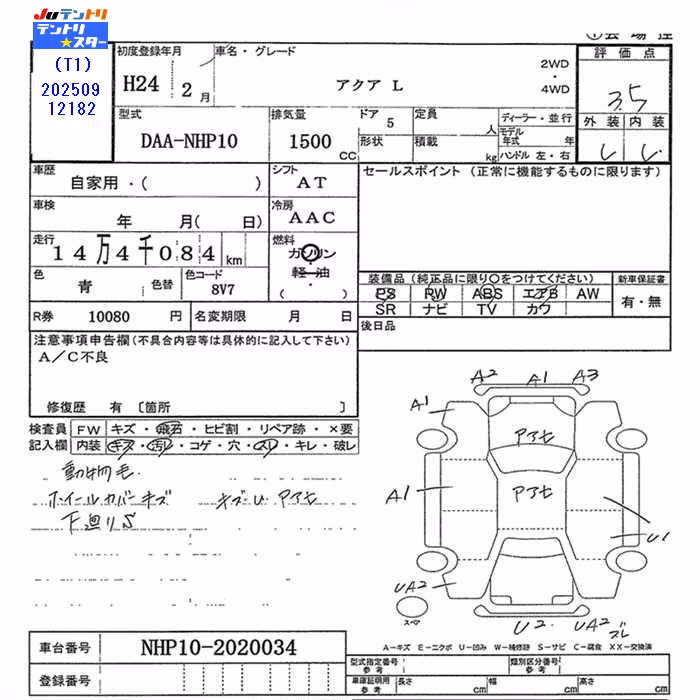 Juテントリ
テントリ
★スター
(T1)
202509
12182
初度登録年月
H24 2月
車名・グレード
アクア L
2WD
・
4WD
評価点
3.5
外装 内装
型式
DAA-NHP10
排気量
1500 CC
ドア 5
形状
定員 人
積載 kg
ディーラー・並行
モデル年式 年
ハンドル 左・右
車歴
自家用・( )
シフト
AT
セールスポイント(正常に機能するものに限ります)
車検
年 月( 日)
冷房
AAC
走行
14万4千084km
燃料
ガソリン
・
軽油
( )
色
青
色替
色コード
8V7
装備品(純正品に限り○をつけてください)
新車保証書
PS PW ABS エアB AW
有・無
SR ナビ TV カワ
R券 10080 円
名変期限 月 日
後日品
注意事項申告欄(不具合内容等は具体的に記入して下さい)
A/C不良
修復歴 有 〔箇所 〕
検査員
記入欄
FW キズ・飛石・ヒビ割・リペア跡・×要
内装 キズ・汚レ・コゲ・穴・スレ・キレ・破レ
動物毛
ホイールカバーキズ キズU アアセ
下廻りS
A2 A1 A3
A1
アアセ
A1
アアセ
U1
UA2
スペア
U2 UA2
スレ
車台番号 NHP10-2020034
登録番号
A-キズ E-エクボ U-凹み W-補修跡 S-サビ C-腐食 XX-交換済
型式指定番号
参考
類別区分番号
参考
車庫証明用
参考
長さ cm 幅 cm 高さ cm